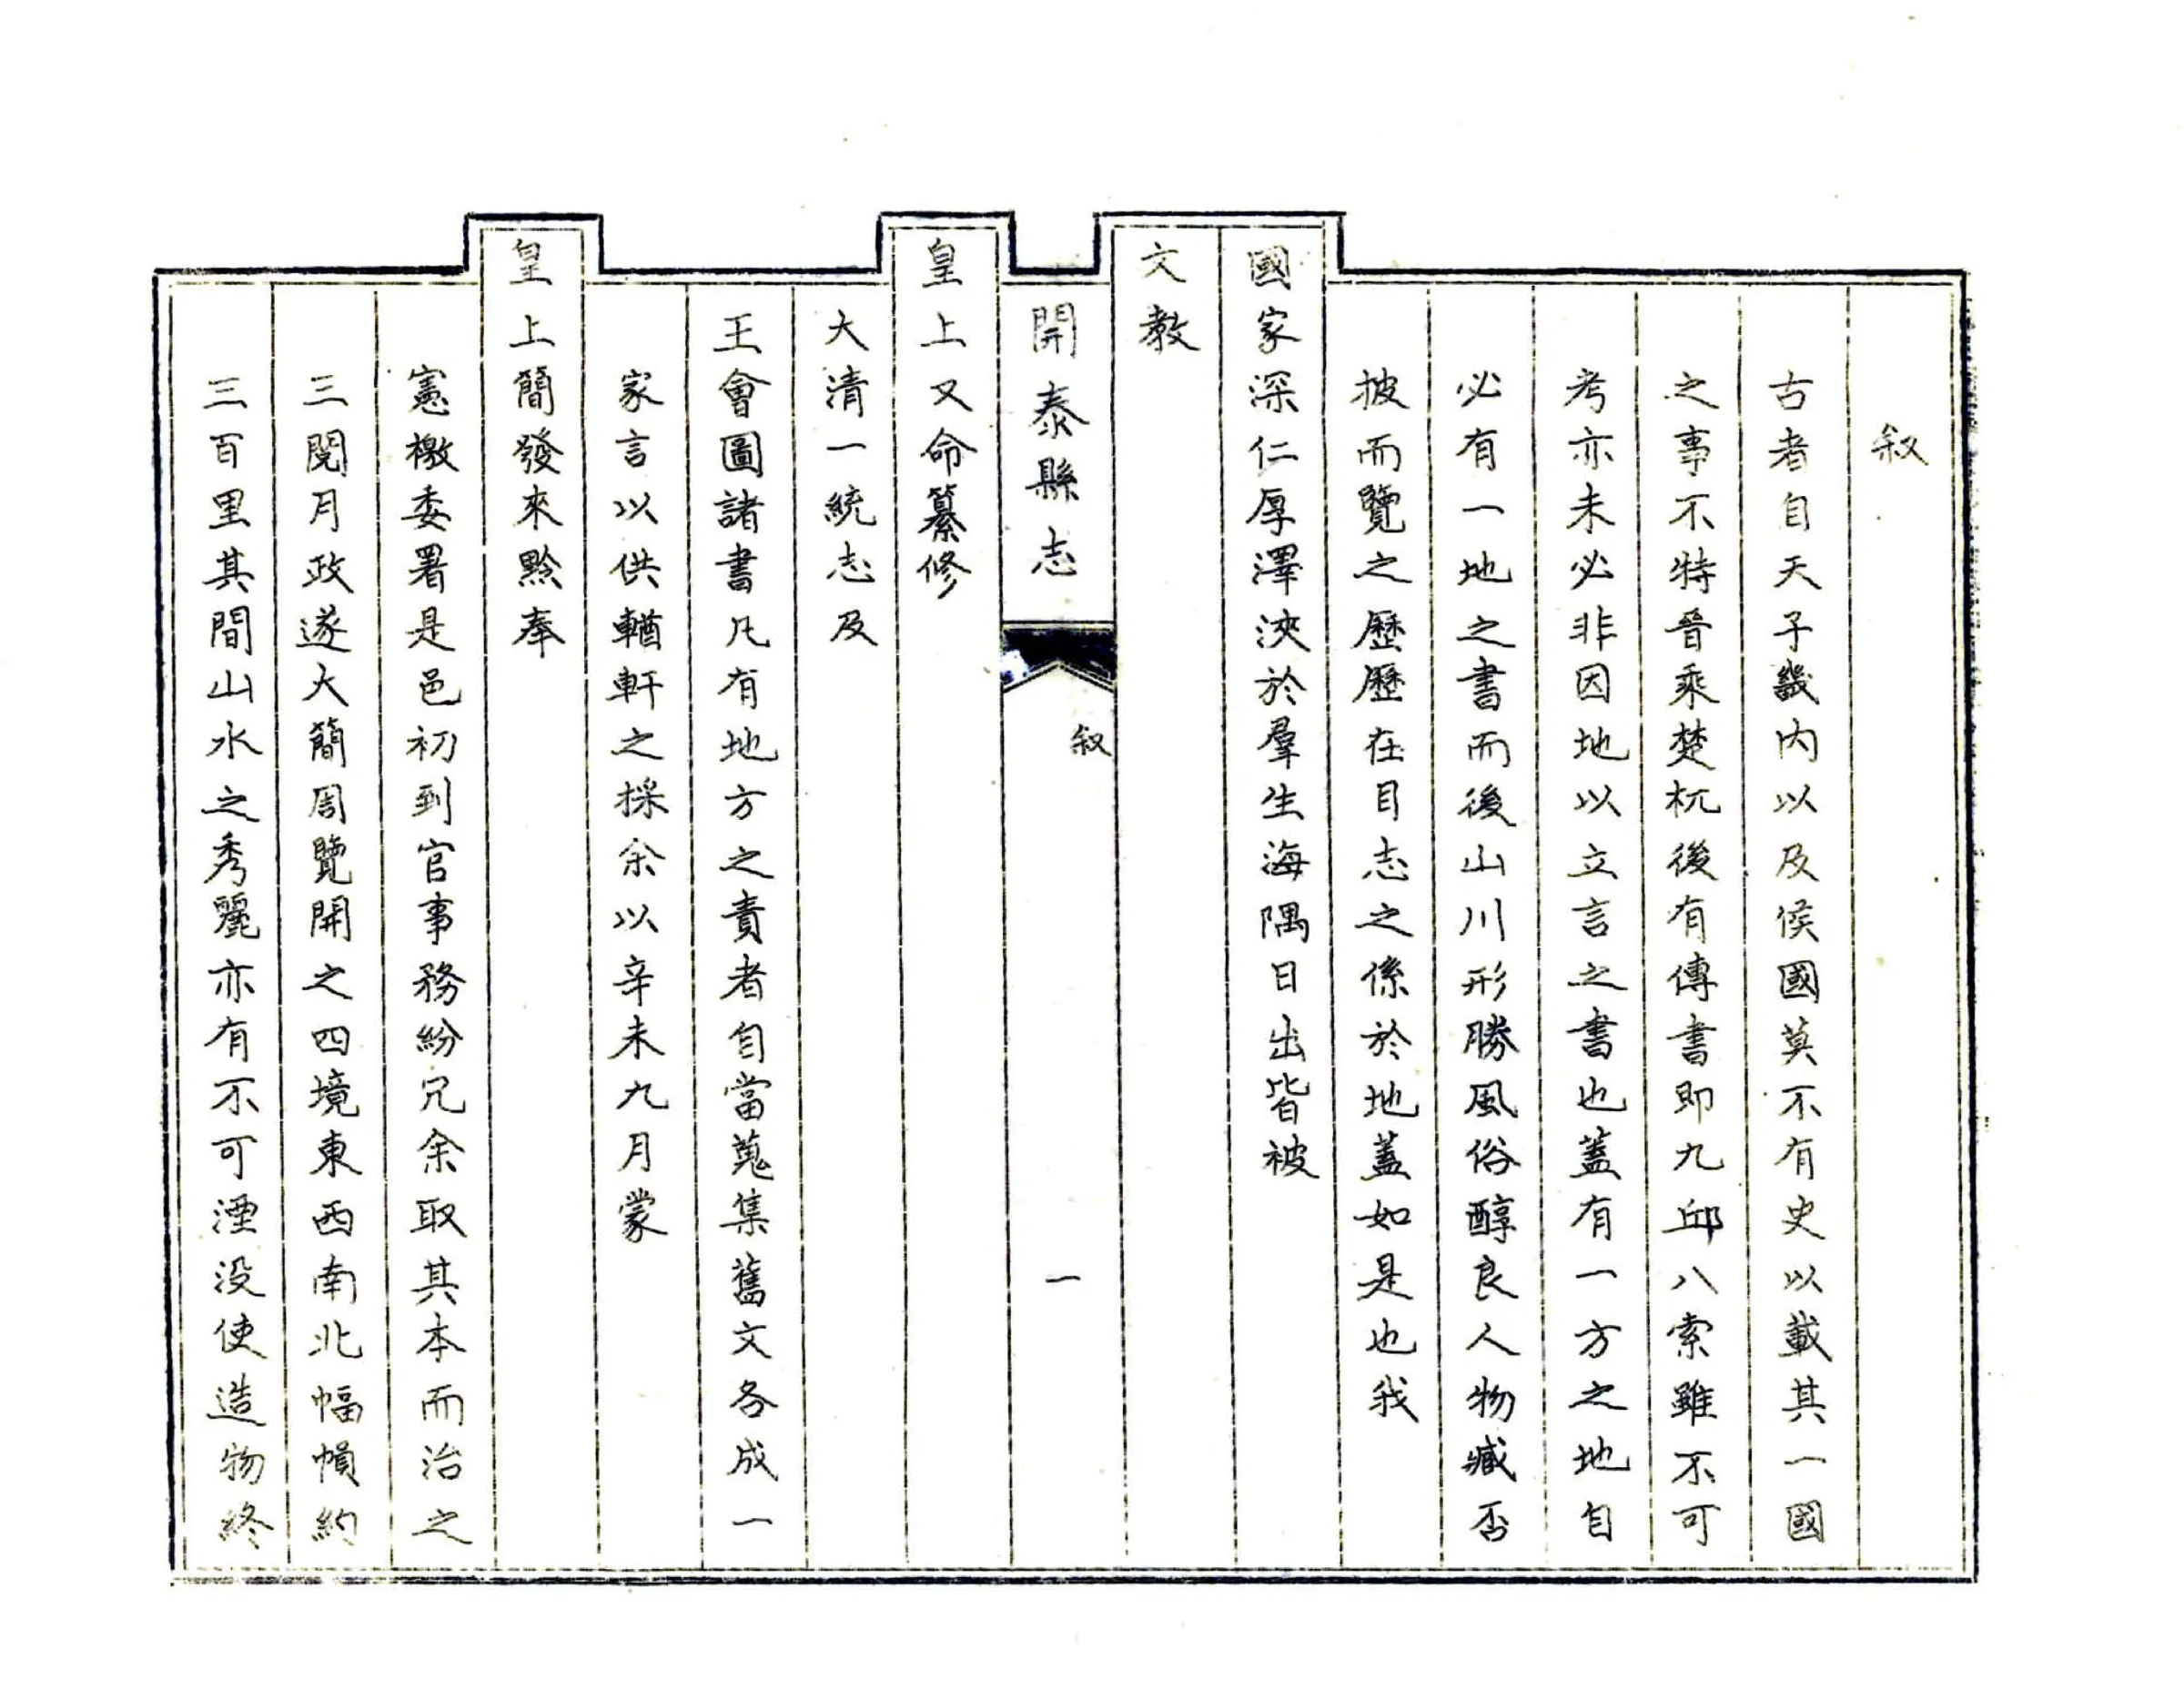 叙
古者自天子畿内以及侯國莫不有史以載其一國
之事不特晉乘楚杌後有傳書即九邱八索雖不可
考亦未必非因地以立言之書也蓋有一方之地自
必有一地之書而後山川形勝風俗醇良人物臧否
披而覽之歷歷在目志之係於地蓋如是也我
國家深仁厚澤浹於羣生海隅日出皆被
文教
開泰縣志 叙 一
皇上又命纂修
大清一統志及
王會圖諸書凡有地方之責者自當蒐集舊文各成一
家言以供輶軒之採余以辛未九月蒙
皇上簡發來黔奉
憲檄委署是邑初到官事務紛冗余取其本而治之
三閱月政遂大簡周覽開之四境東西南北幅幀約
三百里其間山水之秀麗亦有不可湮没使造物終